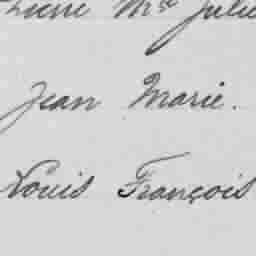 Mse Julie
Jean Marie.
Louis François